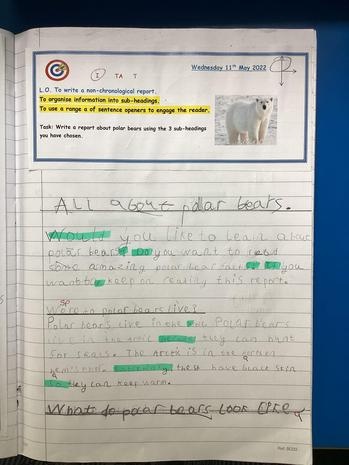 I TA T
Wednesday 11th May 2022
L.O. To write a non-chronological report.
To organise information into sub-headings.
To use a range a of sentence openers to engage the reader.
Task: Write a report about polar bears using the 3 sub-headings
you have chosen.
All about polar bears.
Would you like to learn about
polar bears? Do you want to read
some amazing polar bear facts? If you
want to keep on reading this report.
sp
Were to polar bears live?
Polar bears live in the Polar bears
live in the arctic they can hunt
for seals. The Arctic is in the
have black skin
so they can keep warm.
What do polar bears look like